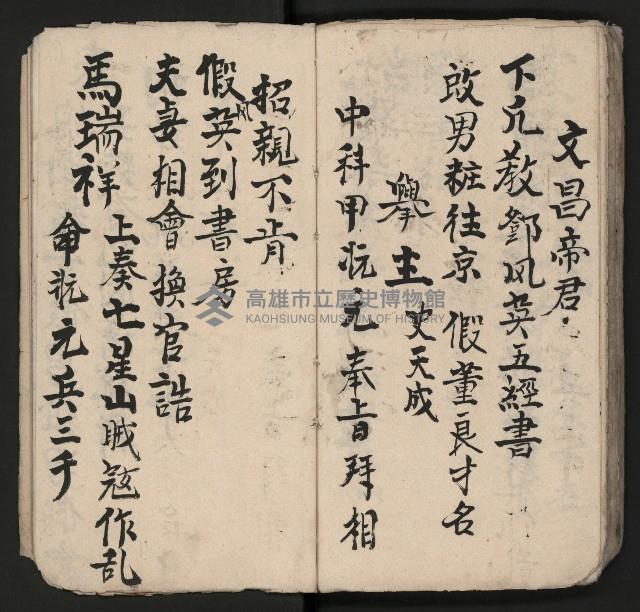 文昌帝君
下凡教鄧凤英五經書
改男粧往京 假董良才名
舉主史天成
中科甲状元奉旨拜相
招親不肯
假凤英到書房
夫妻相會換官誥
馬瑞祥上奏七星山賊冦作乱
命状元兵三千
高雄市立歷史博物館
KAOHSIUNG MUSEUM OF HISTORY